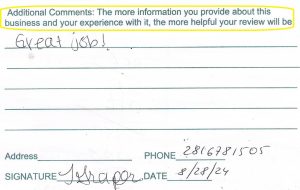 Additional Comments: The more information you provide about this
business and your experience with it, the more helpful your review will be
Great job!
Address PHONE 2816781505
SIGNATURE DATE 8/28/24